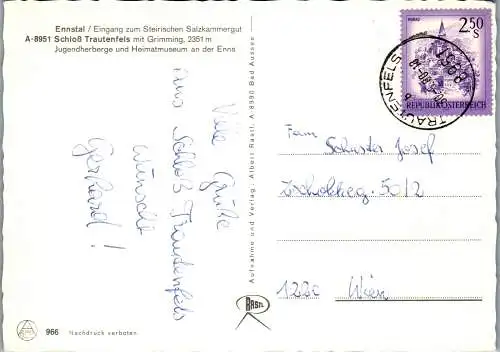 Ennstal / Eingang zum Steirischen Salzkammergut
A-8951 Schloß Trautenfels mit Grimming, 2351 m
Jugendherberge und Heimatmuseum an der Enns
Viele Grüße
aus Schloß Trautenfels
wünscht
Gerhard!
Aufnahme und Verlag: Albert Rastl, A 8990 Bad Aussee
MURAU
2.50
S
REPUBLIK ÖSTERREICH
8951
TRAUTENFELS
Fam
Schuster Josef
50/2
1220 Wien
RASTL
966 Nachdruck verboten